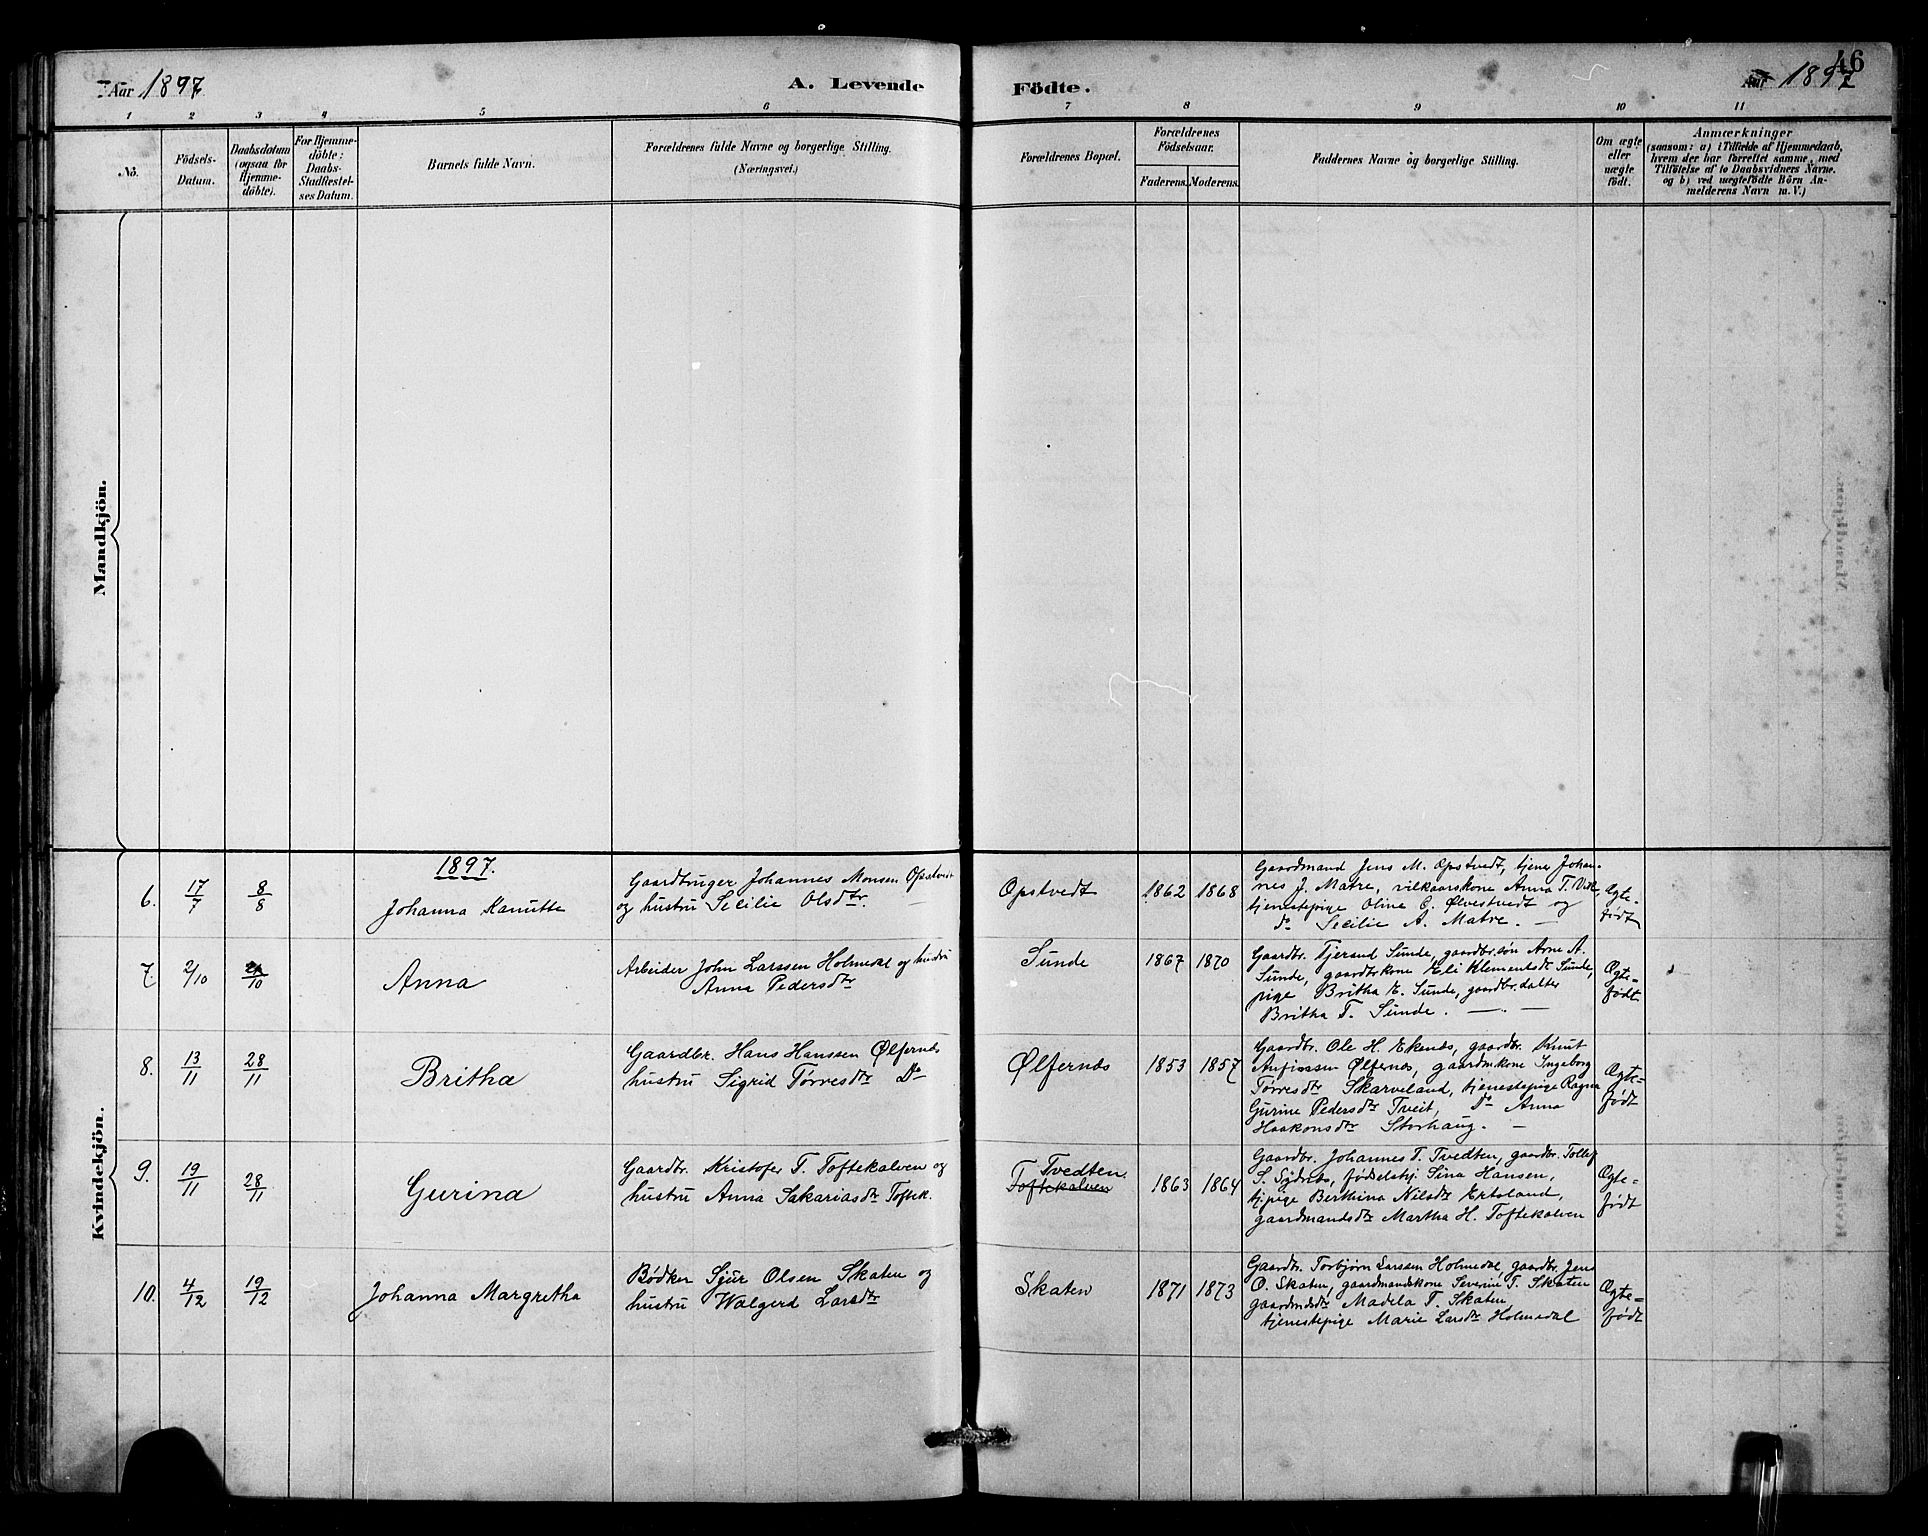 Aar 1897
A. Levende Födte.
46
Aar 1897
1 2 3 4 5 6 7 8 9 10 11
No.
Födsels-
Datum.
Daabsdatum
(ogsaa for
Hjemme-
döbte).
For Hjemme-
döbte:
Daabs-
Stadfæstel-
ses Datum.
Barnets fulde Navn.
Forældrenes fulde Navne og borgerlige Stilling.
(Næringsvei.)
Forældrenes Bopæl.
Forældrenes
Födselsaar.
Faderens. Moderens.
Faddernes Navne og borgerlige Stilling.
Om ægte
eller
uægte
födt.
Anmærkninger
(saasom: a) i Tilfælde af Hjemmedaab,
hvem der har forrettet samme, med
Tilföielse af to Daabsvidners Navne.
og b) ved uægtefödte Börn An-
melderens Navn m. V.)
Mandkjön.
Kvindekjön.
1897.
6. 17/7 8/8 Johanna Kanutte
Gaardbruger Johannes Monsen Opstvedt
og hustru Secilie Olsdtr.
Opstvedt 1862 1868
Gaardmand Jens M. Opstvedt, tjener Johan-
nes J. Matre, vilkaarskone Anna T.
tjenestepige Oline E. Ølvestvedt og
Do Secilie A. Matre.
Ægte-
født
7. 2/10 /10 Anna
Arbeider John Larssen Holmedal og hustru
Anna Pedersdtr
Sunde 1867 1870
Gaardbr. Tjerand Sunde, gaardbr.søn Arne A.
Sunde, gaardbrkone Eli Klementsdt Sunde,
pige Britha E. Sunde, gaardbr.datter
Britha T. Sunde.
Ægte-
født.
8. 13/11 28/11 Britha
Gaardbr. Hans Hanssen Ølfernes
hustru Sigrid Tørresdtr Do
Ølfernes 1853 1857
Gaardbr. Ole H. Ekenes, gaardbr. Knut
Anfinssen Ølfernes, gaardmkone Ingeborg
Tørresdtr Skarveland, tjenestepige Ragna
Gurine Pedersdtr Tveit, Do Anna
Haakonsdtr Storhaug.
Ægte-
født
9. 19/11 28/11 Gurina
Gaardbr. Kristofer T. Toftekalven og
hustru Anna Sakariasdtr Toftek.
Tvedten.
Toftekalven 1863 1864
Gaardbr. Johannes T. Tvedten, gaardbr. Tollef
S. Sydnes, fødselshj. Sina Hansen,
tjpige Berthina Nilsdtr Ertsland,
gaardmandsdtr Martha H. Toftekalven
Ægte-
født
10. 4/12 19/12 Johanna Margretha
Bødker Sjur Olsen Skaten og
hustru Walgerd Larsdtr
Skaten 1871 1873
Gaardbr. Torbjørn Larssen Holmedal, gaardbr. Jens
O. Skaten, gaardmandskone Severine T. Skaten
gaardmdsdtr Madela T. Skaten
tjenestepige Marie Larsdtr Holmedal
Ægte-
født